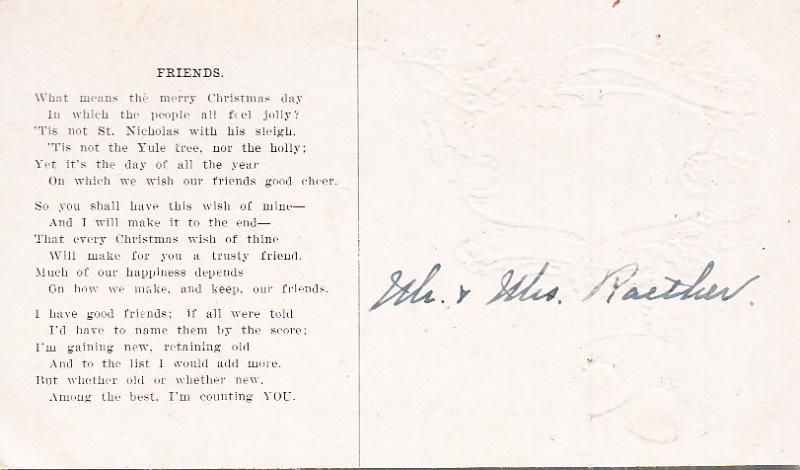 FRIENDS.
What means the merry Christmas day
In which the people all feel jolly?
'Tis not St. Nicholas with his sleigh,
'Tis not the Yule tree, nor the holly;
Yet it's the day of all the year
On which we wish our friends good cheer.
So you shall have this wish of mine—
And I will make it to the end—
That every Christmas wish of thine
Will make for you a trusty friend.
Much of our happiness depends
On how we make, and keep, our friends.
I have good friends; if all were told
I'd have to name them by the score;
I'm gaining new, retaining old
And to the list I would add more.
But whether old or whether new,
Among the best, I'm counting YOU.
Mr. & Mrs. Raether.